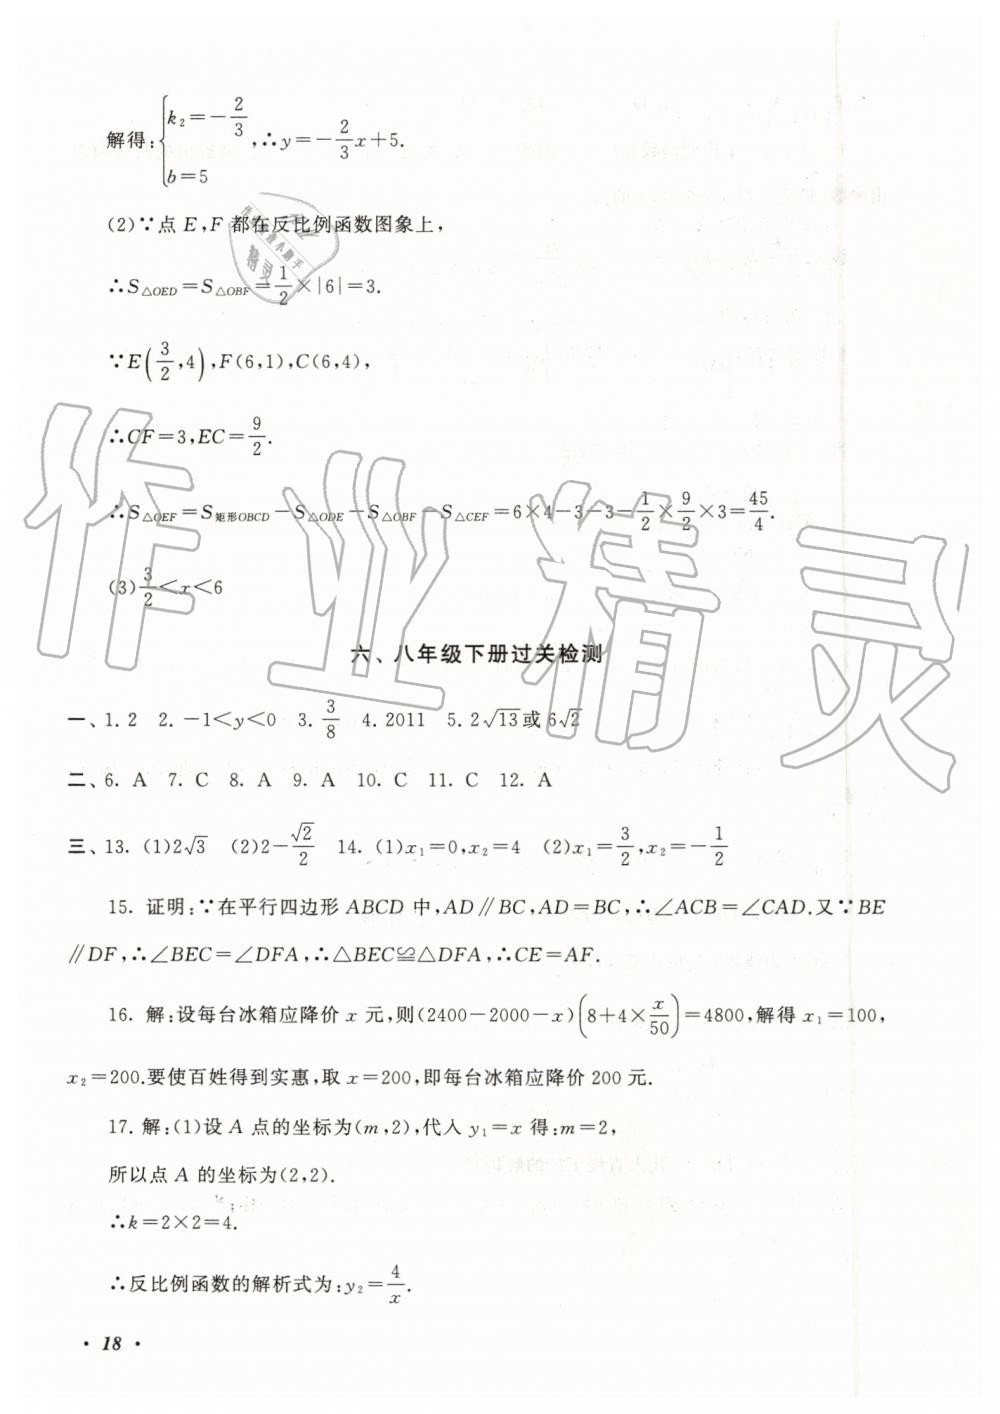 解得:{k₂=-2/3, b=5 ,∴y=-2/3x+5.
(2)∵点 E,F 都在反比例函数图象上,
∴S△OED=S△OBF=1/2×|6|=3.
∵E(3/2,4),F(6,1),C(6,4),
∴CF=3,EC=9/2.
∴S△OEF=S矩形OBCD-S△ODE-S△OBF-S△CEF=6×4-3-3-1/2×9/2×3=45/4.
(3)3/2<x<6
六、八年级下册过关检测
一、1.2 2.-1<y<0 3.3/8 4.2011 5.2√13或6√2
二、6. A 7. C 8. A 9. A 10. C 11. C 12. A
三、13. (1)2√3 (2)2-√2/2 14. (1)x₁=0,x₂=4 (2)x₁=3/2,x₂=-1/2
15. 证明:∵在平行四边形 ABCD 中,AD∥BC,AD=BC,∴∠ACB=∠CAD.又∵BE
∥DF,∴∠BEC=∠DFA,∴△BEC≌△DFA,∴CE=AF.
16. 解:设每台冰箱应降价 x 元,则(2400-2000-x)(8+4×x/50)=4800,解得 x₁=100,
x₂=200.要使百姓得到实惠,取 x=200,即每台冰箱应降价 200 元.
17. 解:(1)设 A 点的坐标为(m,2),代入 y₁=x 得:m=2,
所以点 A 的坐标为(2,2).
∴k=2×2=4.
∴反比例函数的解析式为:y₂=4/x.
· 18 ·
作业精灵